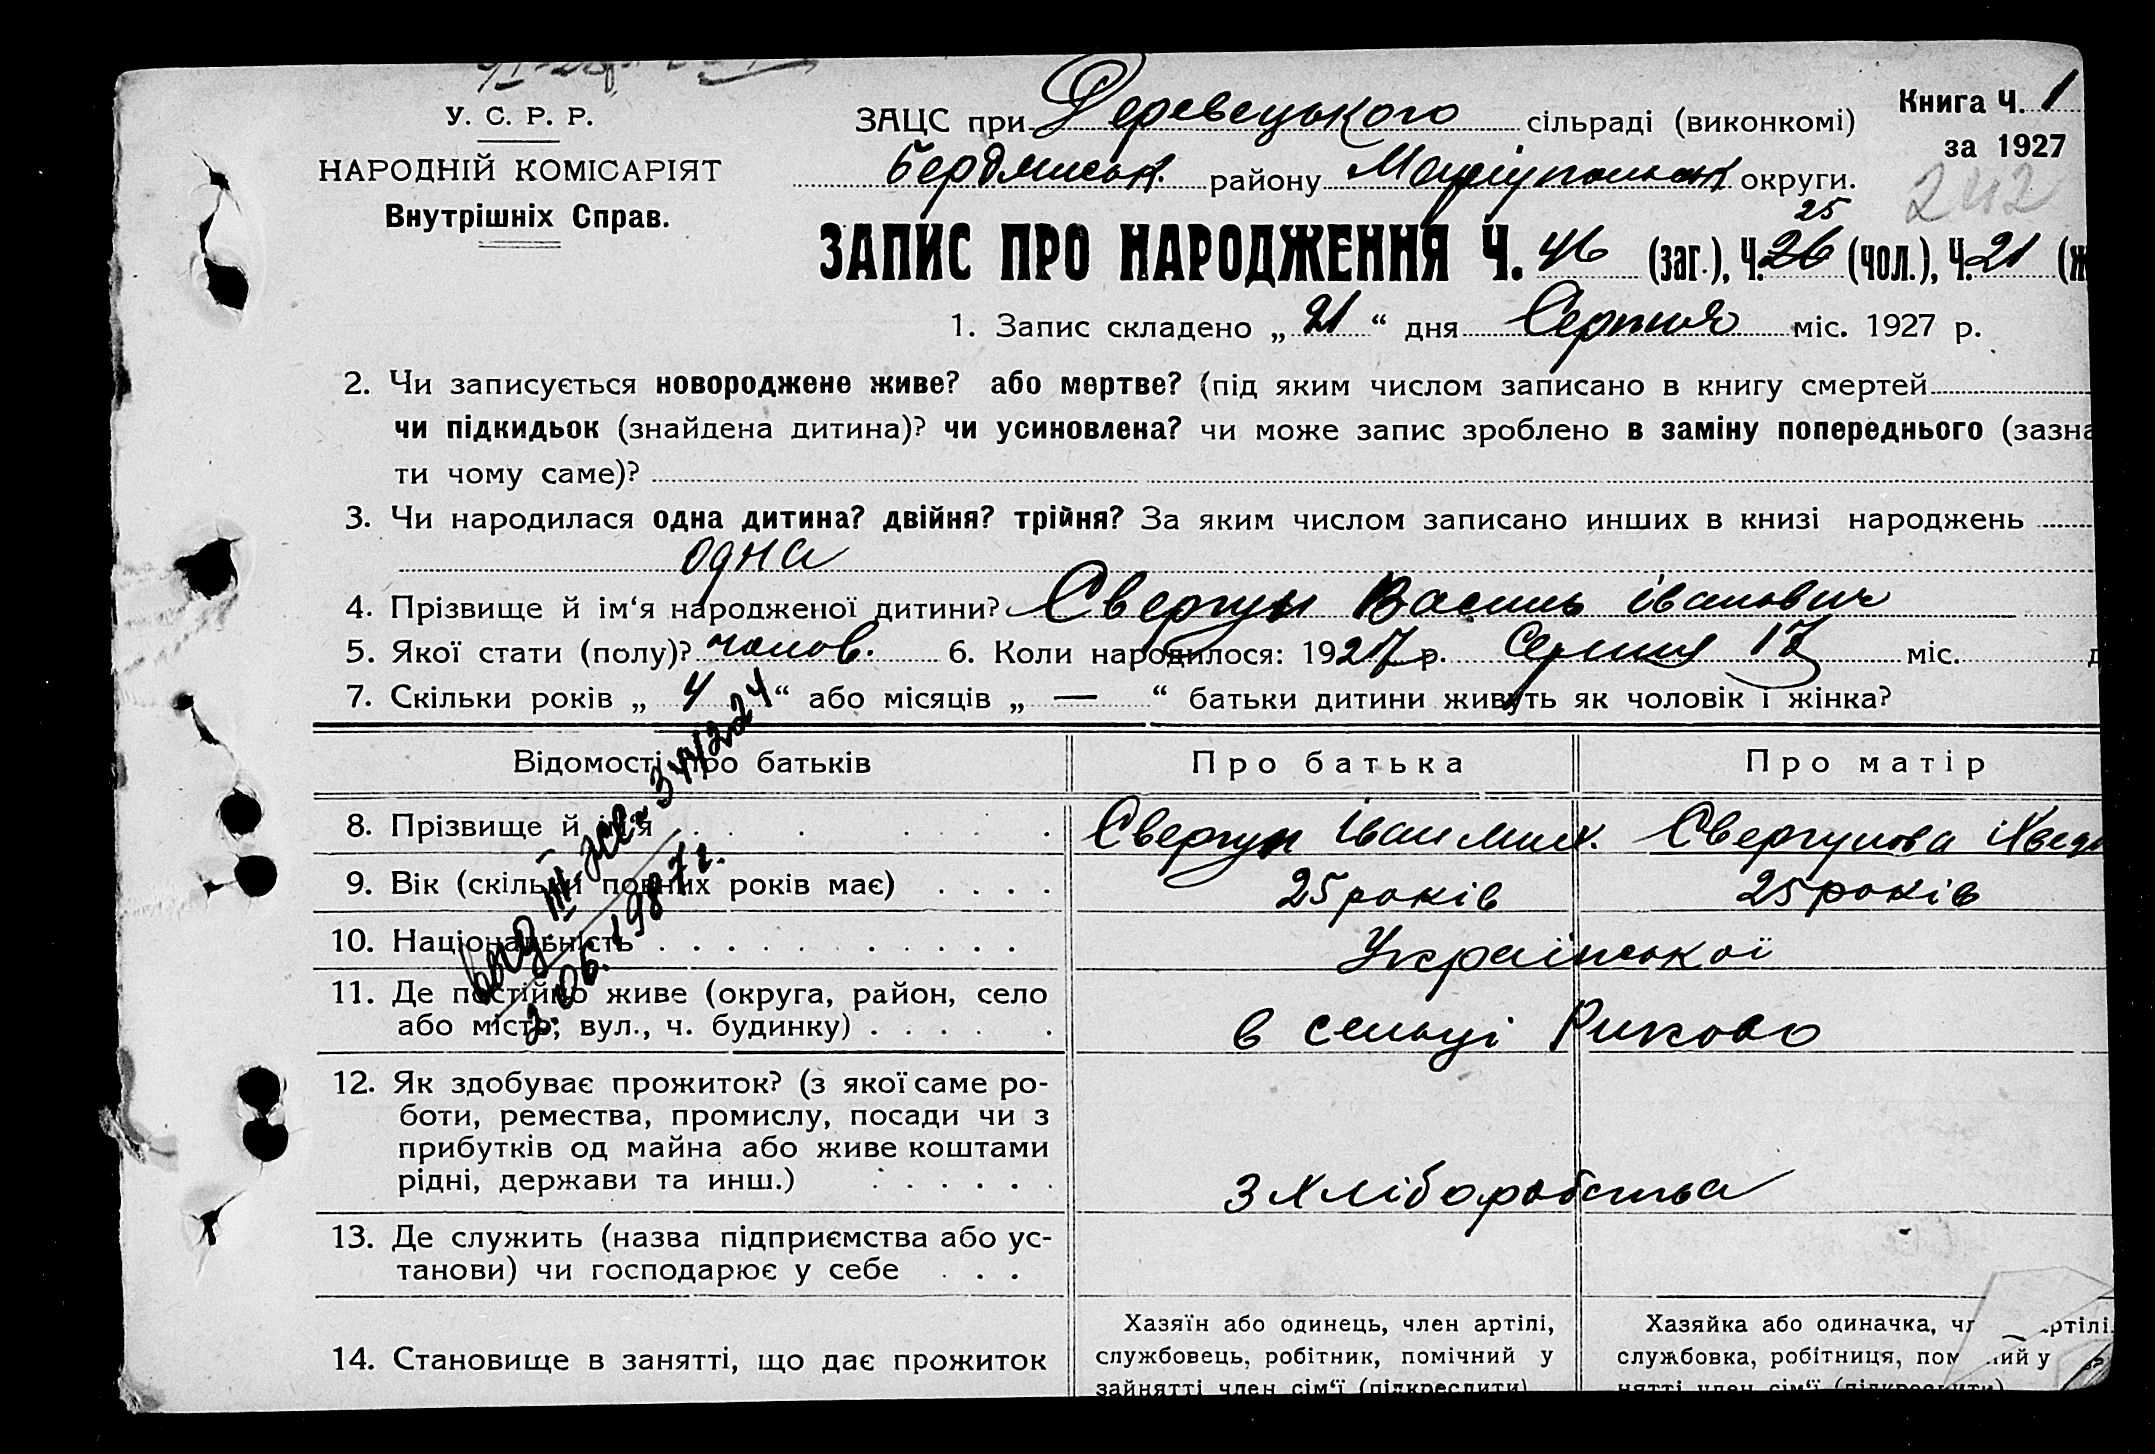 У. С. Р. Р.
НАРОДНІЙ КОМІСАРІЯТ
Внутрішніх Справ.
ЗАЦС при Деревецького сільраді (виконкомі)
Книга Ч. 1
за 1927
Бердянськ. району Маріупольськ округи.
242
25
ЗАПИС ПРО НАРОДЖЕННЯ Ч. 46 (заг.), Ч. 26 (чол.), Ч. 21 (ж
1. Запис складено „ 21 “ дня Серпня міс. 1927 р.
2. Чи записується новороджене живе? або мертве? (під яким числом записано в книгу смертей
чи підкидьок (знайдена дитина)? чи усиновлена? чи може запис зроблено в заміну попереднього (зазна
ти чому саме)?
3. Чи народилася одна дитина? двійня? трійня? За яким числом записано инших в книзі народжень
одна
4. Прізвище й ім‘я народженої дитини? Свергун Василь іванович
5. Якої стати (полу)? чолов. 6. Коли народилося: 1927 р. Серпня 17 міс. д
7. Скільки років „ 4 “ або місяців „ — “ батьки дитини живуть як чоловік і жінка?
Відомості про батьків
Про батька
Про матір
8. Прізвище й ім‘я
Свергун Іван Мих.
Свергунова
9. Вік (скільки повних років має)
25 років
25 років
10. Національність
Української
11. Де постійно живе (округа, район, село
або місто, вул., ч. будинку)
в сельці Риково
12. Як здобуває прожиток? (з якої саме ро-
боти, ремества, промислу, посади чи з
прибутків од майна або живе коштами
рідні, держави та инш.)
З хліборобства
13. Де служить (назва підприємства або ус-
танови) чи господарює у себе
14. Становище в занятті, що дає прожиток
Хазяїн або одинець, член артілі,
службовець, робітник, помічний у
зайнятті член сім‘ї (підкреслити)
Хазяйка або одиначка, чл ртілі
службовка, робітниця, пом ний у
нятті член сім‘ї (підкреслити)
выд. III-жс- 344224
2. 06. 1987 г.